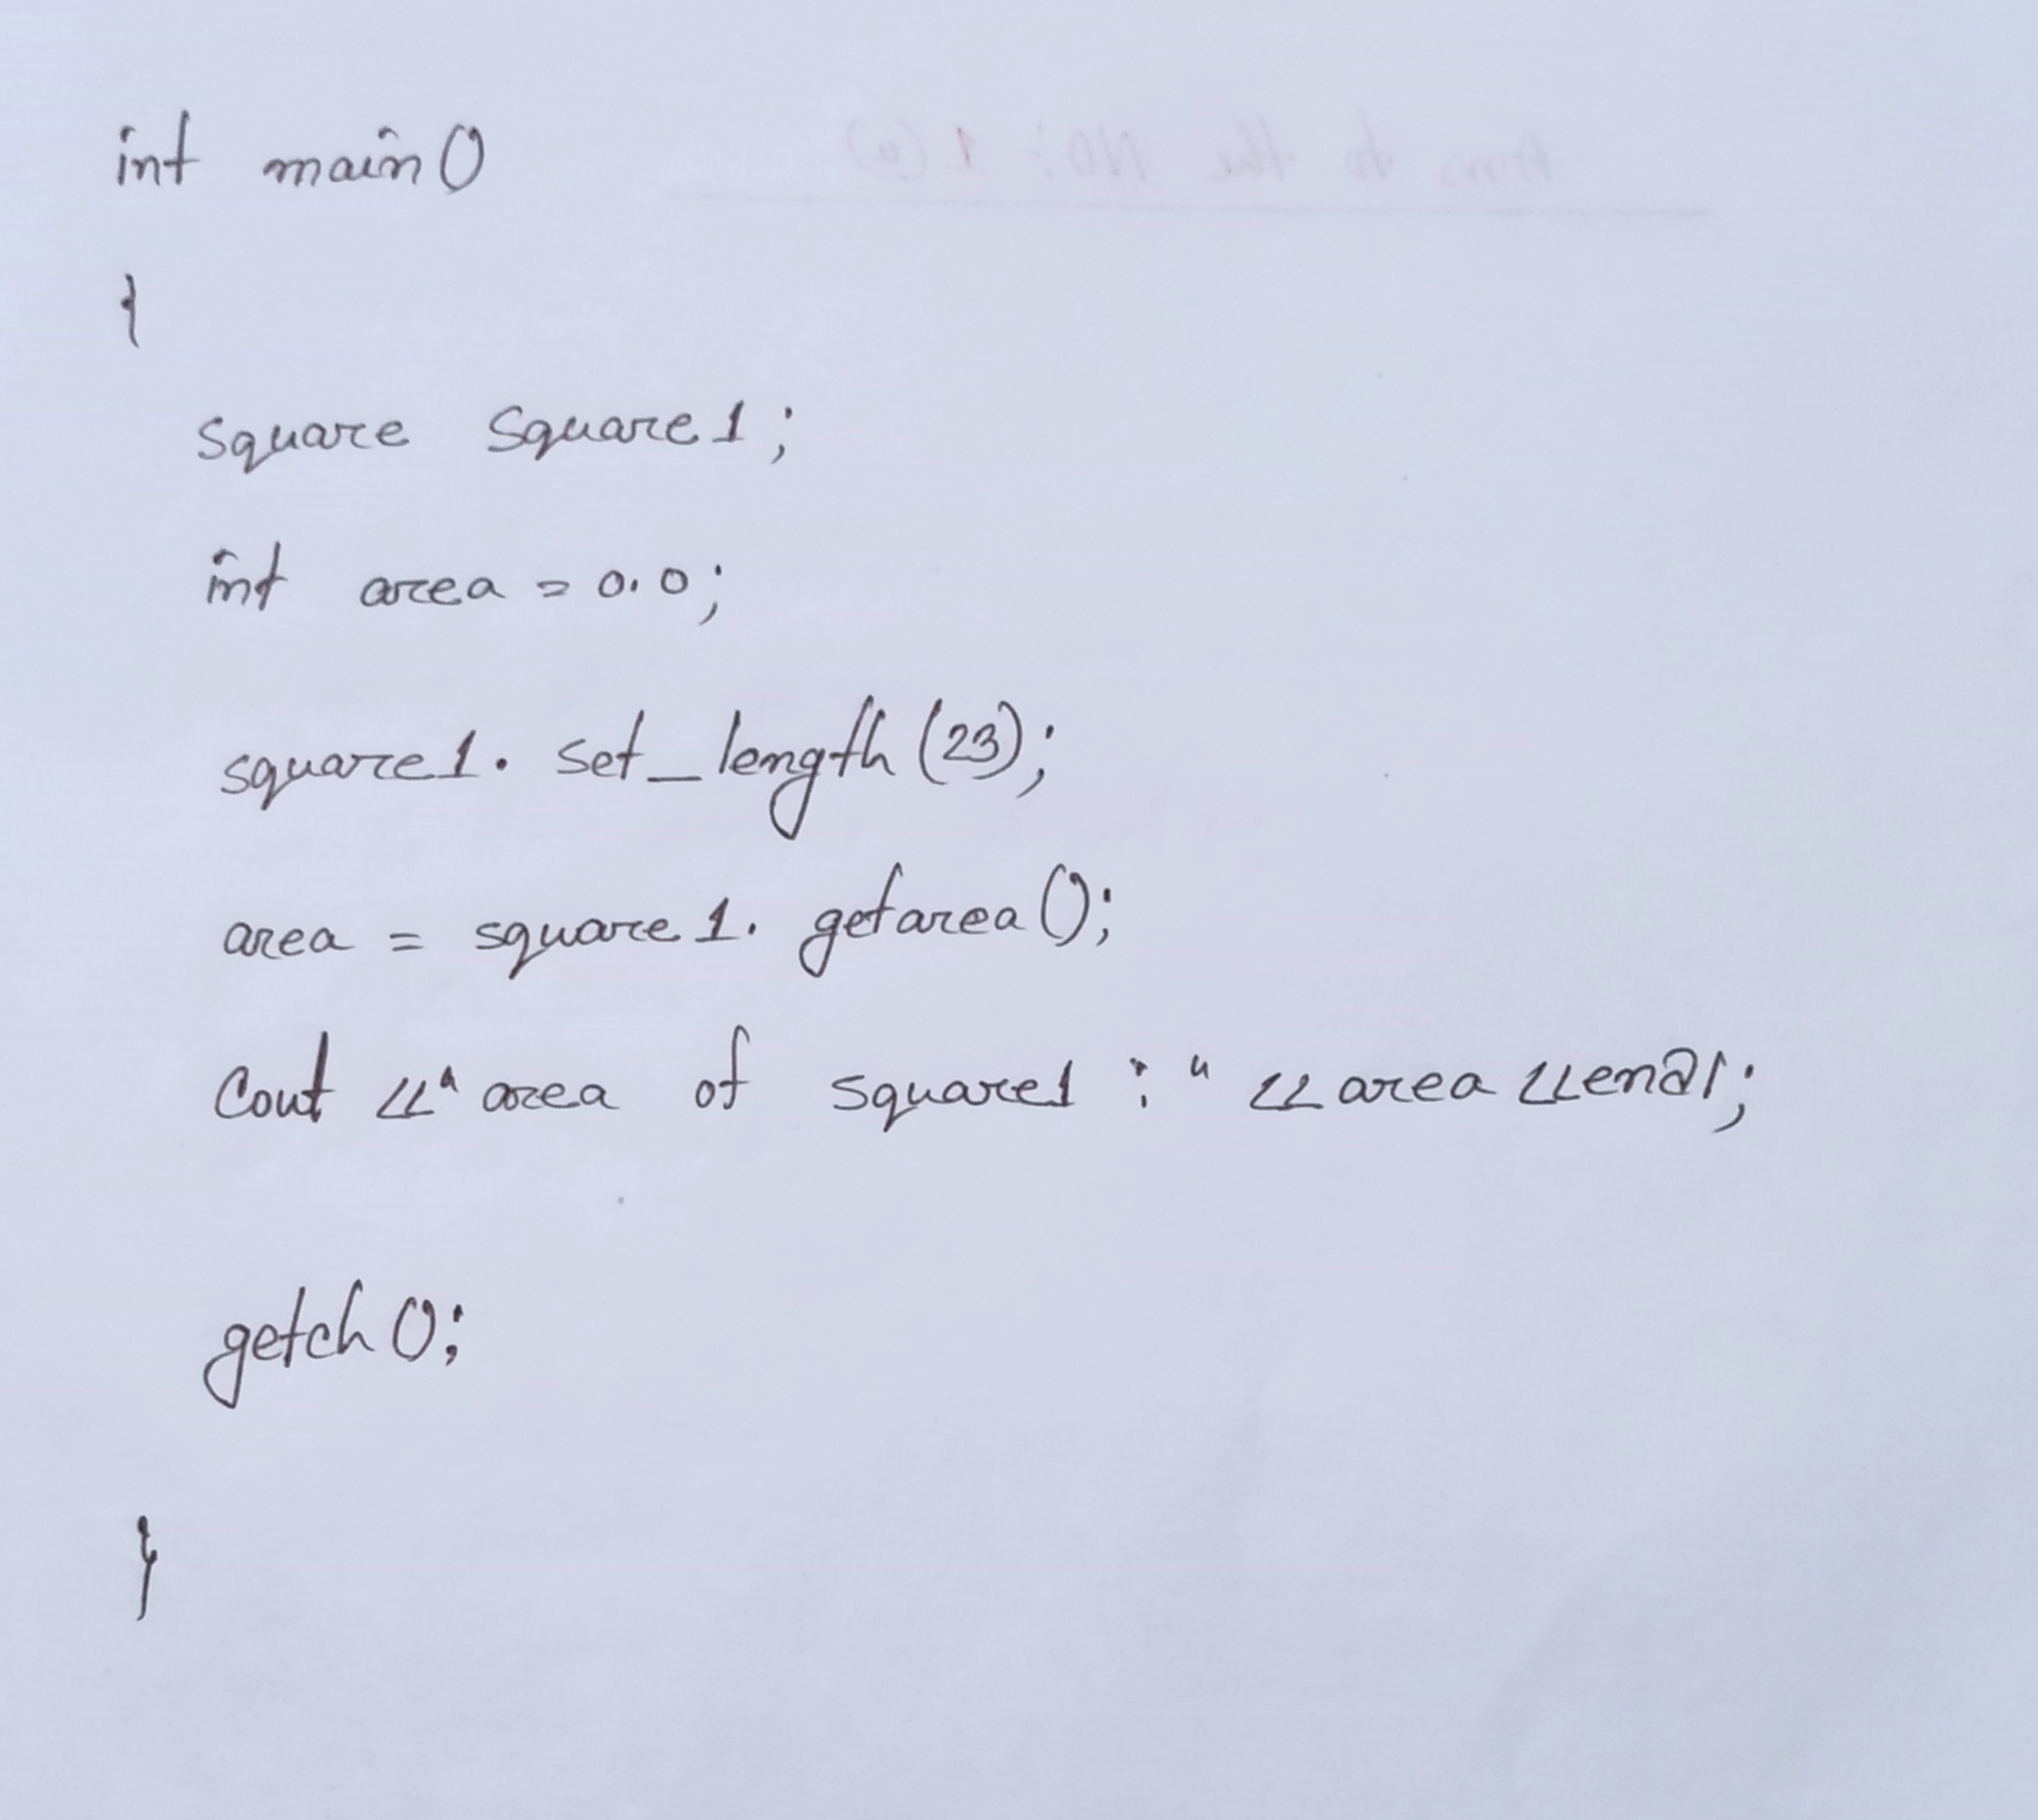 int main()
{
square Square1;
int area = 0.0;
square1. set_length (23);
area = square1. getarea();
Cout <<" area of square1 : " << area <<endl;
getch();
}